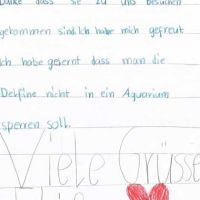 Danke dass Sie zu uns besuchen
gekommen sind. Ich habe mich gefreut
Ich habe gelernt dass man die
Delfine nicht in ein Aquarium
sperren soll.
Viele Grüsse